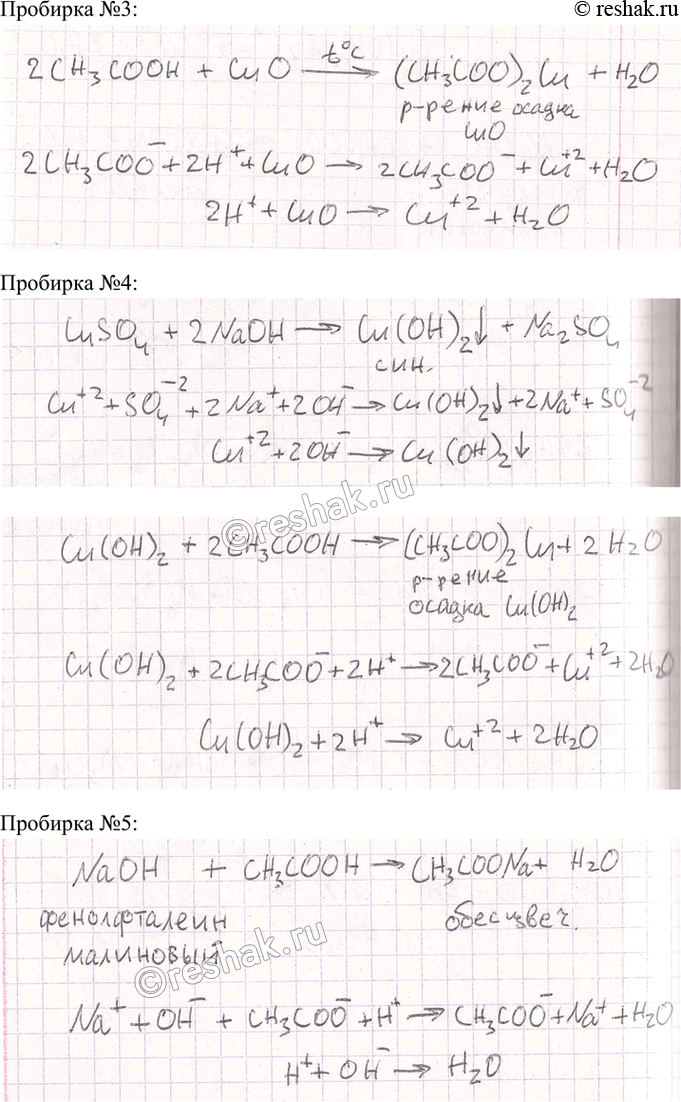 Пробирка №3:
© reshak.ru
2CH₃COOH + CuO —t°C→ (CH₃COO)₂Cu + H₂O
р-рение осадка
CuO
2CH₃COO⁻ + 2H⁺ + CuO → 2CH₃COO⁻ + Cu⁺² + H₂O
2H⁺ + CuO → Cu⁺² + H₂O
Пробирка №4:
CuSO₄ + 2NaOH → Cu(OH)₂↓ + Na₂SO₄
син.
Cu⁺² + SO₄⁻² + 2Na⁺ + 2OH⁻ → Cu(OH)₂↓ + 2Na⁺ + SO₄⁻²
Cu⁺² + 2OH⁻ → Cu(OH)₂↓
©reshak.ru
Cu(OH)₂ + 2CH₃COOH → (CH₃COO)₂Cu + 2H₂O
р-рение
осадка Cu(OH)₂
Cu(OH)₂ + 2CH₃COO⁻ + 2H⁺ → 2CH₃COO⁻ + Cu⁺² + 2H₂O
Cu(OH)₂ + 2H⁺ → Cu⁺² + 2H₂O
Пробирка №5:
NaOH + CH₃COOH → CH₃COONa + H₂O
фенолфталеин обесцвеч.
малиновый
©reshak.ru
Na⁺ + OH⁻ + CH₃COO⁻ + H⁺ → CH₃COO⁻ + Na⁺ + H₂O
H⁺ + OH⁻ → H₂O